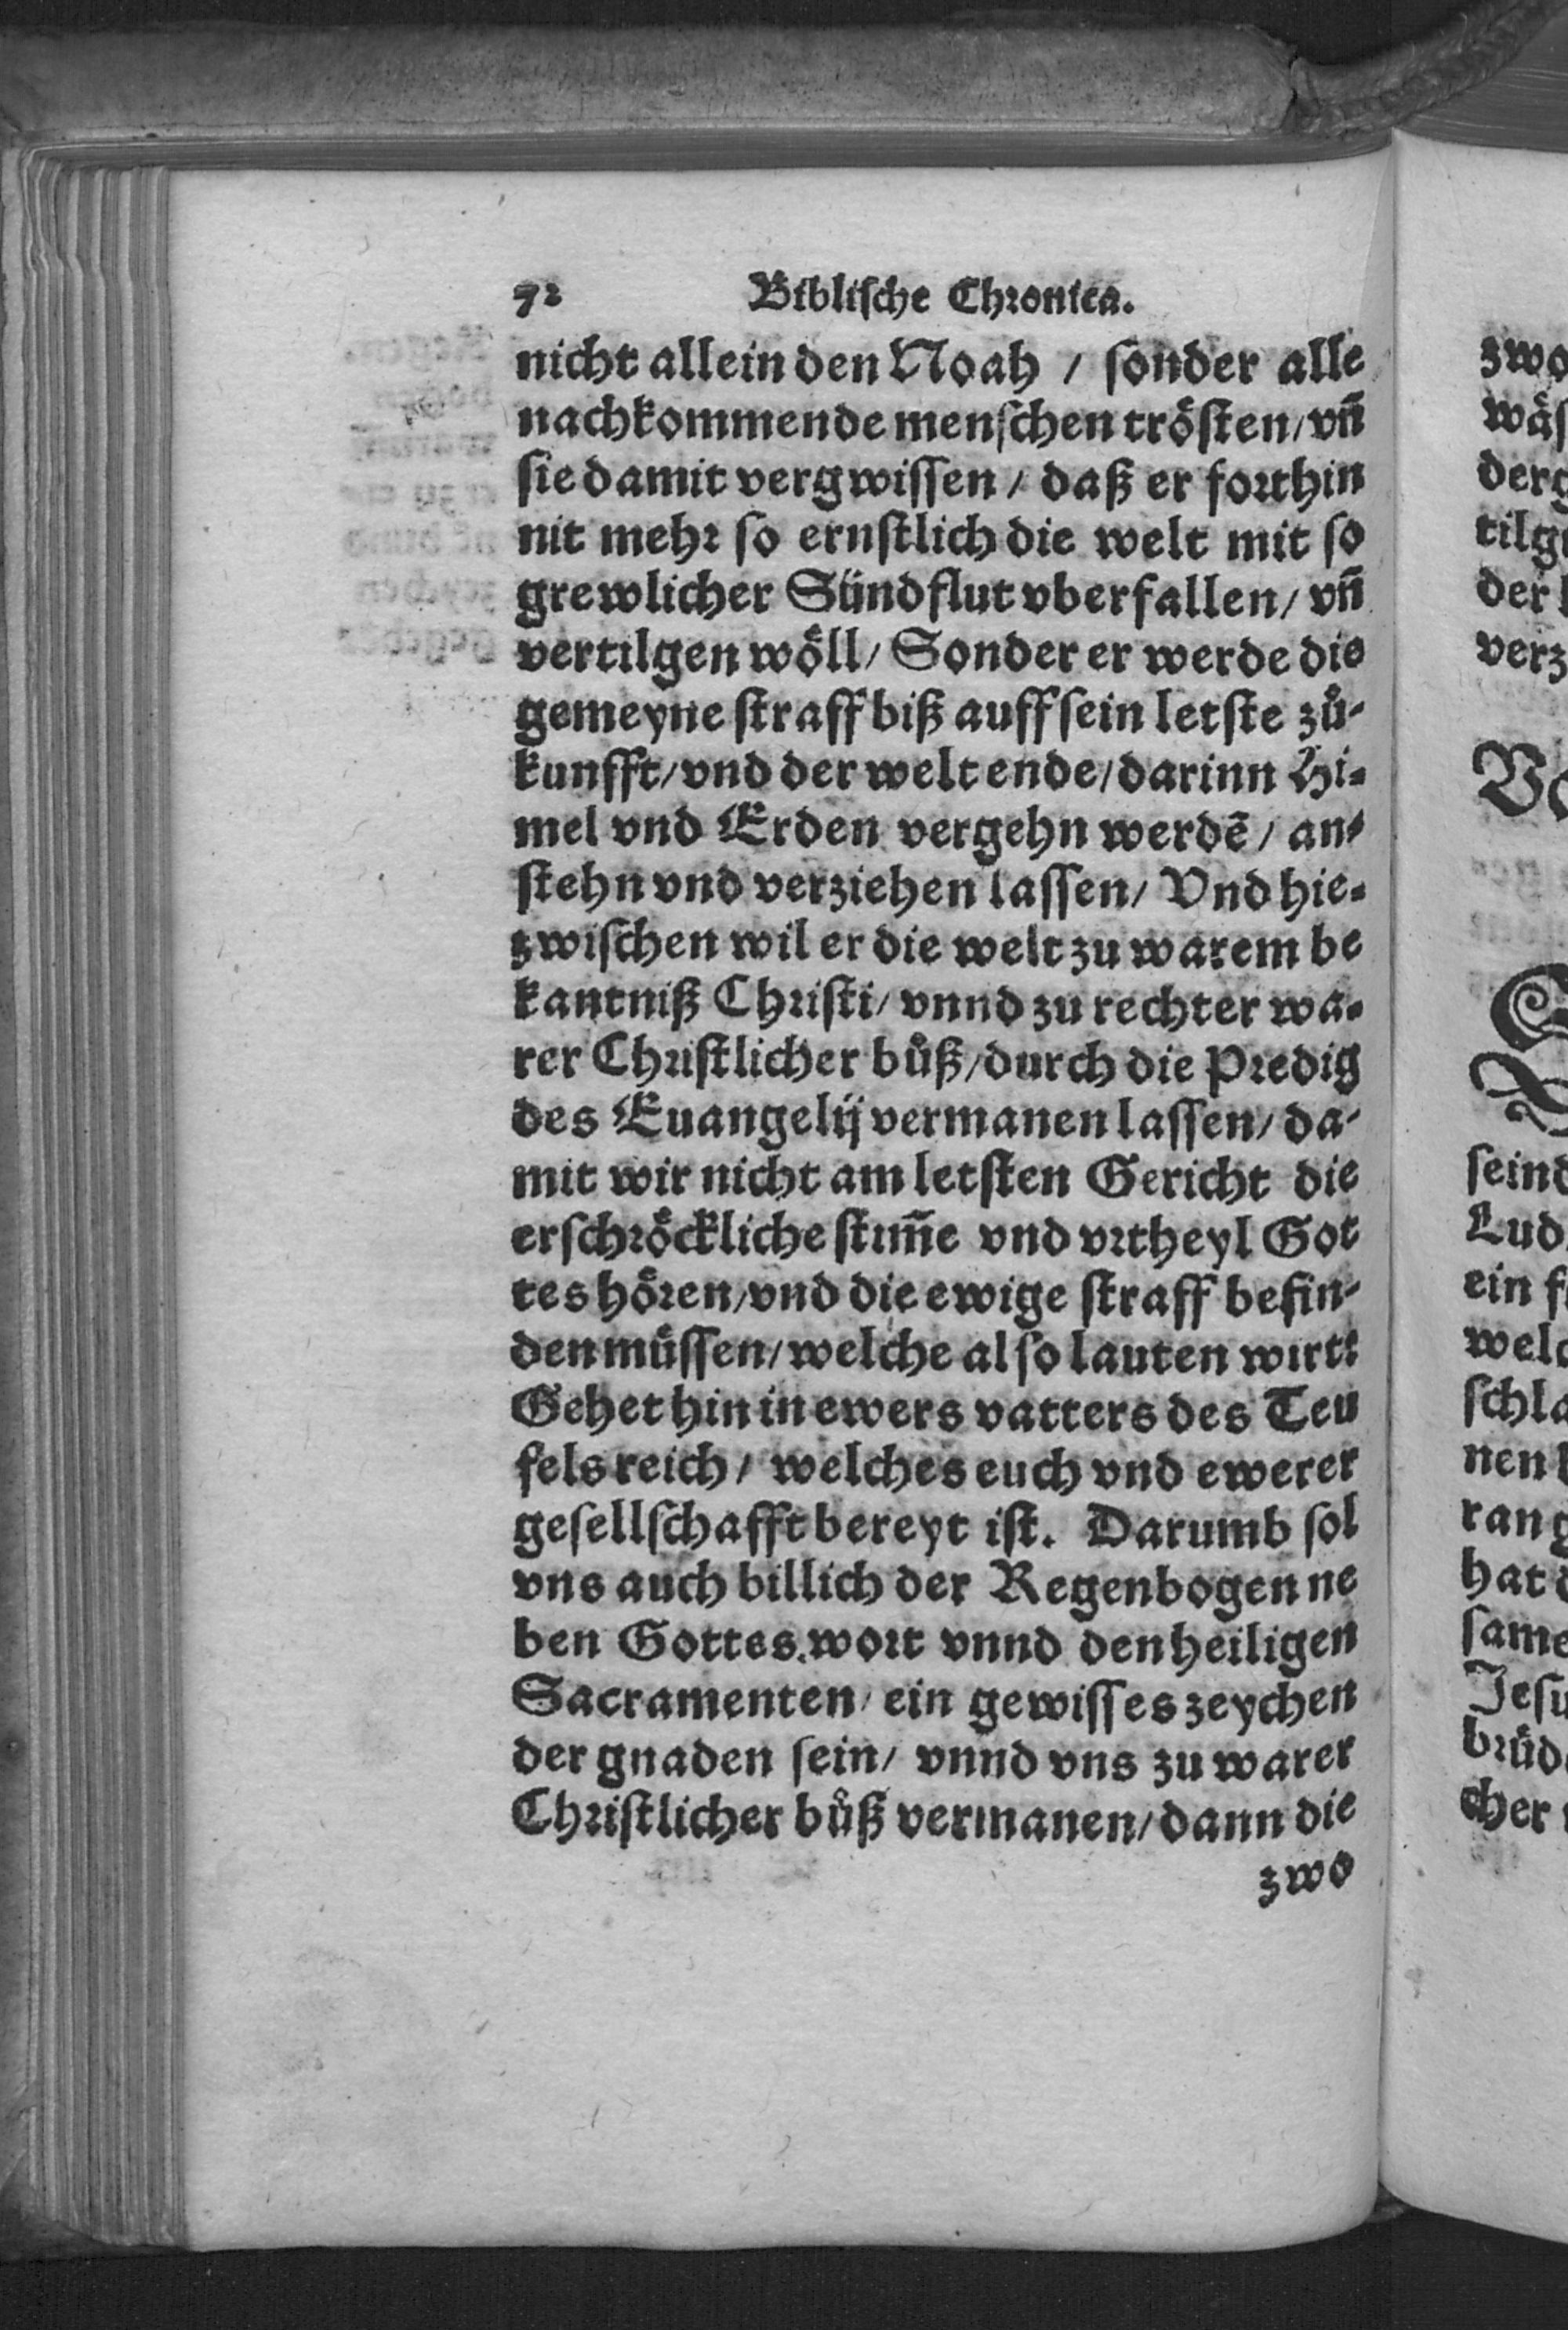 72 Biblische Chronica.
nicht allein den Noah / sonder alle
nachkommende menschen trösten / vñ
sie damit vergwissen / daß er forthin
nit mehr so ernstlich die welt mit so
grewlicher Sündflut vberfallen / vñ
vertilgen wöll / Sonder er werde die
gemeyne straff biß auff sein letste zů-
kunfft / vnd der welt ende / darinn Hi-
mel vnd Erden vergehn werdē / an-
stehn vnd verziehen lassen / Vnd hie-
zwischen wil er die welt zu warem be
kantniß Christi / vnnd zu rechter wa-
rer Christlicher bůß / durch die Predig
des Euangelij vermanen lassen / da-
mit wir nicht am letsten Gericht die
erschröckliche stim̃e vnd vrtheyl Got
tes hören / vnd die ewige straff befin-
den müssen / welche also lauten wirt:
Gehet hin in ewers vatters des Teu
fels reich / welches euch vnd ewerer
gesellschafft bereyt ist. Darumb sol
vns auch billich der Regenbogen ne
ben Gottes wort vnnd den heiligen
Sacramenten / ein gewisses zeychen
der gnaden sein / vnnd vns zu warer
Christlicher bůß vermanen / dann die
zwo
zwo
wäs
derg
tilg
der
verz
Vo
seind
Lud
ein f
welc
schla
nen
ran g
hat
same
Jesu
brüd
cher